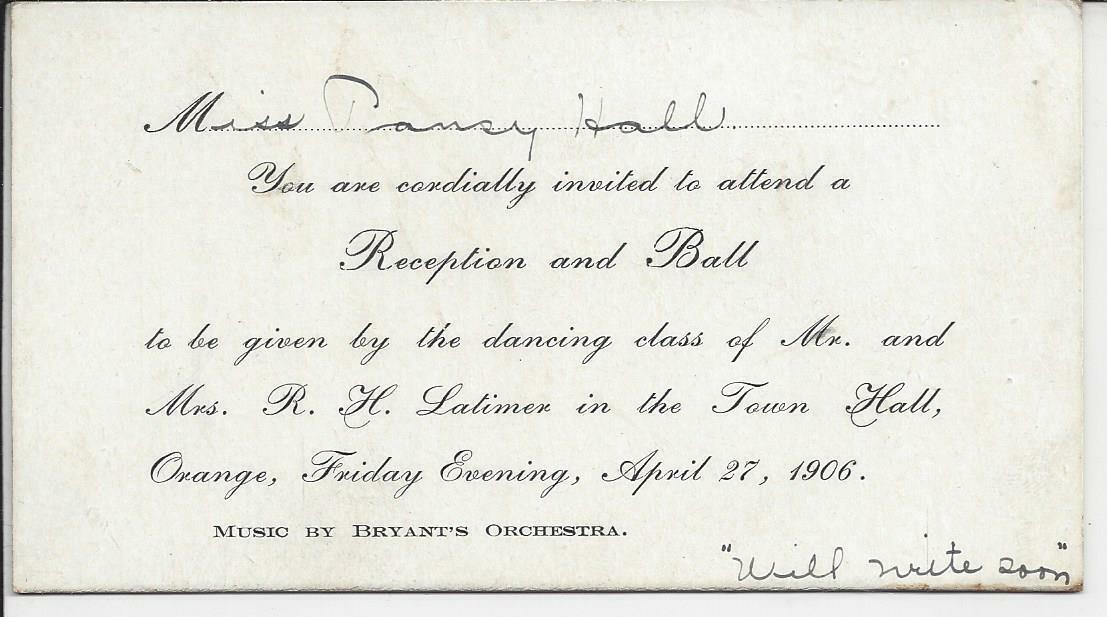 Miss Pansy Hall.
You are cordially invited to attend a
Reception and Ball
to be given by the dancing class of Mr. and
Mrs. R. H. Latimer in the Town Hall,
Orange, Friday Evening, April 27, 1906.
MUSIC BY BRYANT'S ORCHESTRA.
"Will write soon"